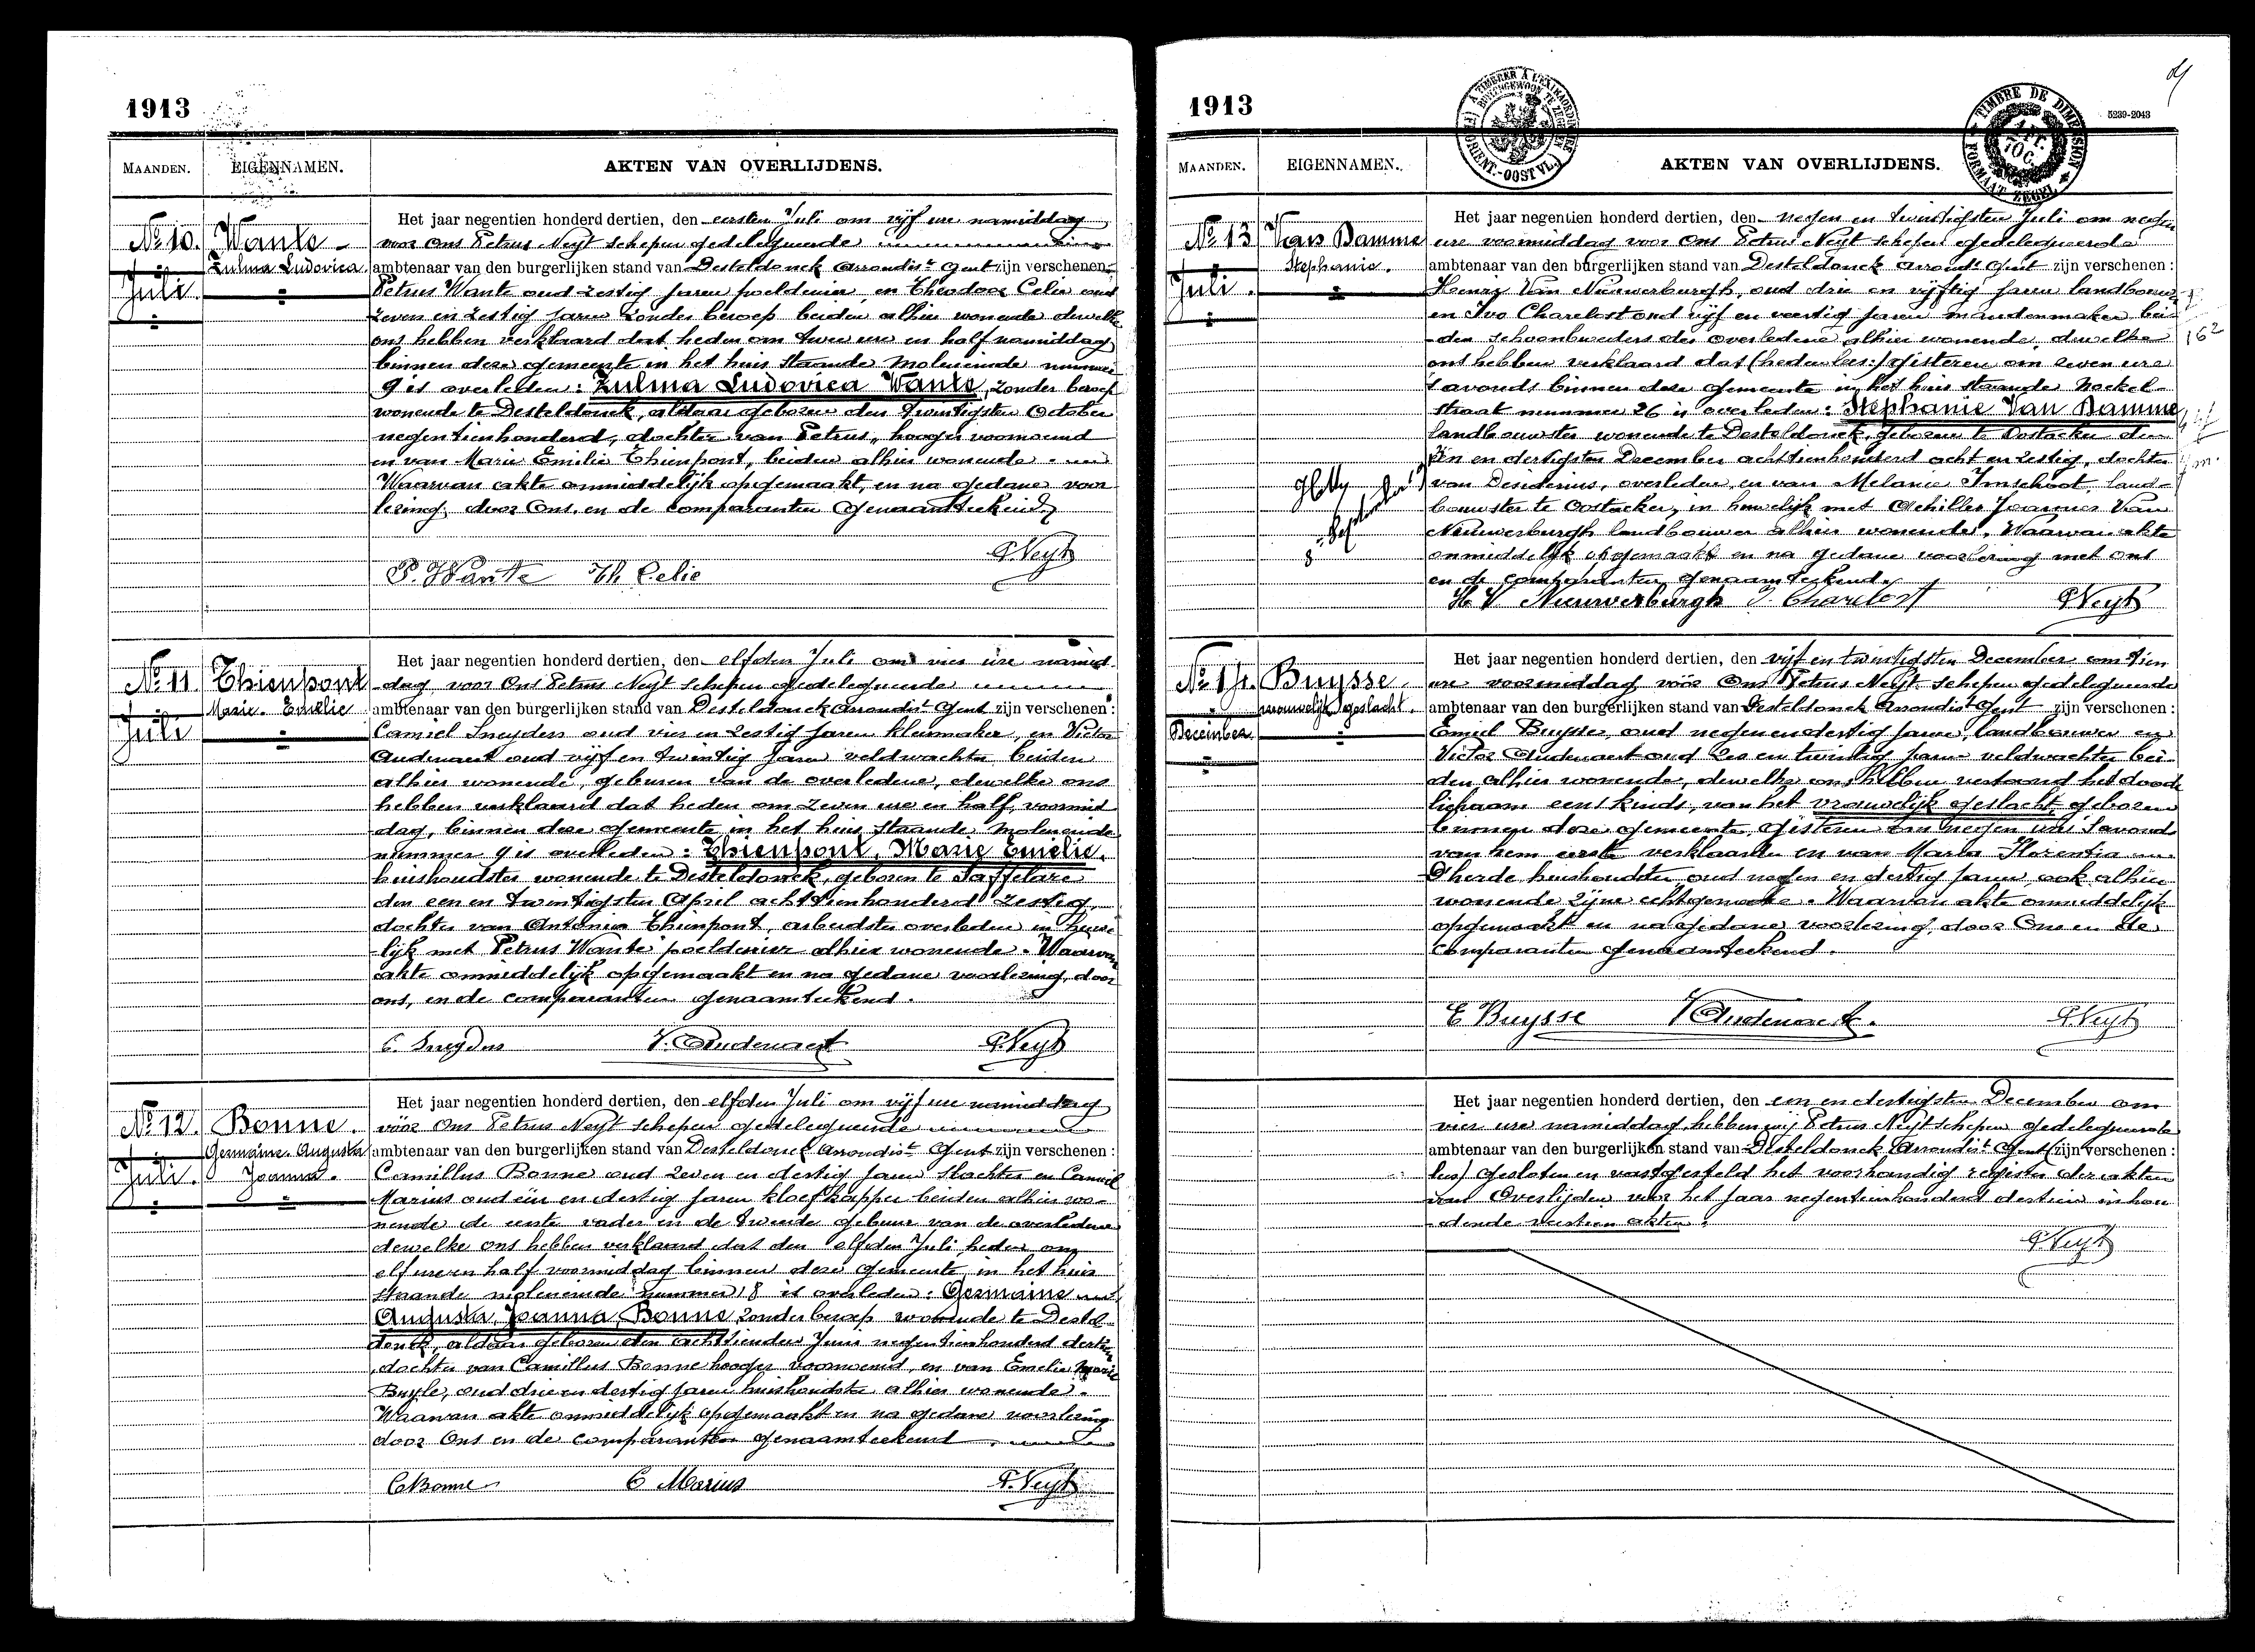 1913
MAANDEN. EIGENNAMEN. AKTEN VAN OVERLIJDENS.
No 10. Wante
Zulma Ludovica
Juli
Het jaar negentien honderd dertien, den eersten Juli om vijf ure namiddag
voor Ons Petrus Neyt schepen gedelegueerde
ambtenaar van den burgerlijken stand van Desteldonck Arrondist Gent zijn verschenen:
Petrus Wante oud zestig jaren poeldenier, en Theodoor Celie oud
zeven en zestig jaren zonder beroep beiden alhier wonende dewelke
ons hebben verklaard dat heden om twee ure en half namiddag
binnen deze gemeente in het huis staande Moleneinde nummer
9 is overleden: Zulma Ludovica Wante, zonder beroep
wonende te Desteldonck, aldaar geboren den twintigsten October
negentienhonderd, dochter van Petrus, hooger voornoemd
en van Marie Emilie Thienpont, beiden alhier wonende.
Waarvan akte onmiddelijk opgemaakt, en na gedane voor
lezing, door Ons, en de comparanten genaamteekend
P. Wante Th Celie PNeyt
No 11. Thienpont
Marie Emelie
Juli
Het jaar negentien honderd dertien, den elfden Juli om vier ure namid
dag voor Ons Petrus Neyt schepen gedelegueerde
ambtenaar van den burgerlijken stand van Desteldonck Arrondist Gent zijn verschenen:
Camiel Sneyders oud vier en zestig jaren kleermaker, en Victor
Audenaert oud vijf en twintig jaren veldwachter beiden
alhier wonende, geburen van de overledene, dewelke ons
hebben verklaard dat heden om zeven ure en half voormid
dag, binnen deze gemeente in het huis staande Moleneinde
nummer 9 is overleden: Thienpont, Marie Emelie,
huishoudster wonende te Desteldonck, geboren te Saffelare
den een en twintigsten April achttienhonderd zestig,
dochter van Antonia Thienpont, arbeidster overleden in huwe
lijk met Petrus Wante poeldenier alhier wonende. Waarvan
akte onmiddelijk opgemaakt en na gedane voorlezing, door
ons, en de comparanten genaamteekend.
C. Sneyders V. Audenaert PNeyt
No 12. Bonne.
Germaine Augusta
Joanna.
Juli.
Het jaar negentien honderd dertien, den elfden Juli om vijf ure namiddag
vóór Ons Petrus Neyt schepen gedelegueerde
ambtenaar van den burgerlijken stand van Desteldonck Arrondist Gent zijn verschenen:
Camillus Bonne oud zeven en dertig jaren slachter en Camiel
Marius oud één en dertig jaren kloefkapper beiden alhier wo-
nende de eerste vader en de tweede gebuur van de overledene
dewelke ons hebben verklaard dat den elfden Juli heden om
elf ure en half voormiddag binnen deze gemeente in het huis
staande moleneinde nummer 8 is overleden: Germaine
Augusta, Joanna, Bonne, zonder beroep wonende te Destel
donck, aldaar geboren den achttienden Juni negentienhonderd dertien
dochter van Camillus Bonne hooger voornoemd, en van Emelie Marie
Buyle, oud drie en dertig jaren huishoudster alhier wonende.
Waarvan akte onmiddelijk opgemaakt en na gedane voorlezing
door Ons en de comparanten genaamteekend
CBonne C Marius P.Neyt
1913
5239-2043
TIMBRE DE DIMENSION
FORMAAT ZEGEL
MAANDEN. EIGENNAMEN. AKTEN VAN OVERLIJDENS.
No 13 Van Damme
Stephanie.
Juli.
Het jaar negentien honderd dertien, den negen en twintigsten Juli om negen
ure voormiddag voor Ons Petrus Neyt schepen gedelegueerde
ambtenaar van den burgerlijken stand van Desteldonck Arrondt Gent zijn verschenen:
Henri Van Nieuwerburgh, oud drie en vijftig jaren landbouwer
en Ivo Charelest oud vijf en veertig jaren mandenmaker bei-
den schoonbroeders der overledene alhier wonende, dewelke
ons hebben verklaard dat (heden lees:) gisteren om zeven ure
'savonds binnen deze gemeente in het huis staande Neckel-
straat nummer 26 is overleden: Stephanie Van Damme,
landbouwster wonende te Desteldonck, geboren te Oostacker den
één en dertigsten December achttienhonderd acht en zestig, dochter
van Desiderius, overleden, en van Melanie Imschoot, land-
bouwster te Oostacker, in huwelijk met Achilles Joannes Van
Nieuwerburgh landbouwer alhier wonende. Waarvan akte
onmiddelijk opgemaakt en na gedane voorlezing met ons
en de comparanten genaamteekend.
H V Nieuwerburgh I. Charelest PNeyt
No 14. Buysse
vrouwelijk geslacht.
December
Het jaar negentien honderd dertien, den vijf en twintigsten December om tien
ure voormiddag vóór Ons Petrus Neyt schepen gedelegueerde
ambtenaar van den burgerlijken stand van Desteldonck Arrondist Gent zijn verschenen:
Emiel Buysse, oud negen en dertig jaren, landbouwer en
Victor Audenaert oud zes en twintig jaren veldwachter bei-
den alhier wonende, dewelke ons hebben vertoond het dood
lichaam eens kinds, van het vrouwelijk geslacht, geboren
binnen deze gemeente, gisteren ten negen ure 'savonds
van hem eerste verklaarder en van Maria Florentia
D'herde huishoudster oud negen en dertig jaren ook alhier
wonende zijne echtgenoote. Waarvan akte onmiddelijk
opgemaakt en na gedane voorlezing, door Ons en de
comparanten genaamteekend.
E Buysse V Audenaert. PNeyt
Het jaar negentien honderd dertien, den een en dertigsten December om
vier ure namiddag, hebben wij Petrus Neyt schepen gedelegueerde
ambtenaar van den burgerlijken stand van Desteldonck Arrondist Gent (zijn verschenen:
lees) gesloten en vastgesteld het voorhandig register der akten
van Overlijden voor het jaar negentienhonderd dertien inhou
dende veertien akten.
PNeyt